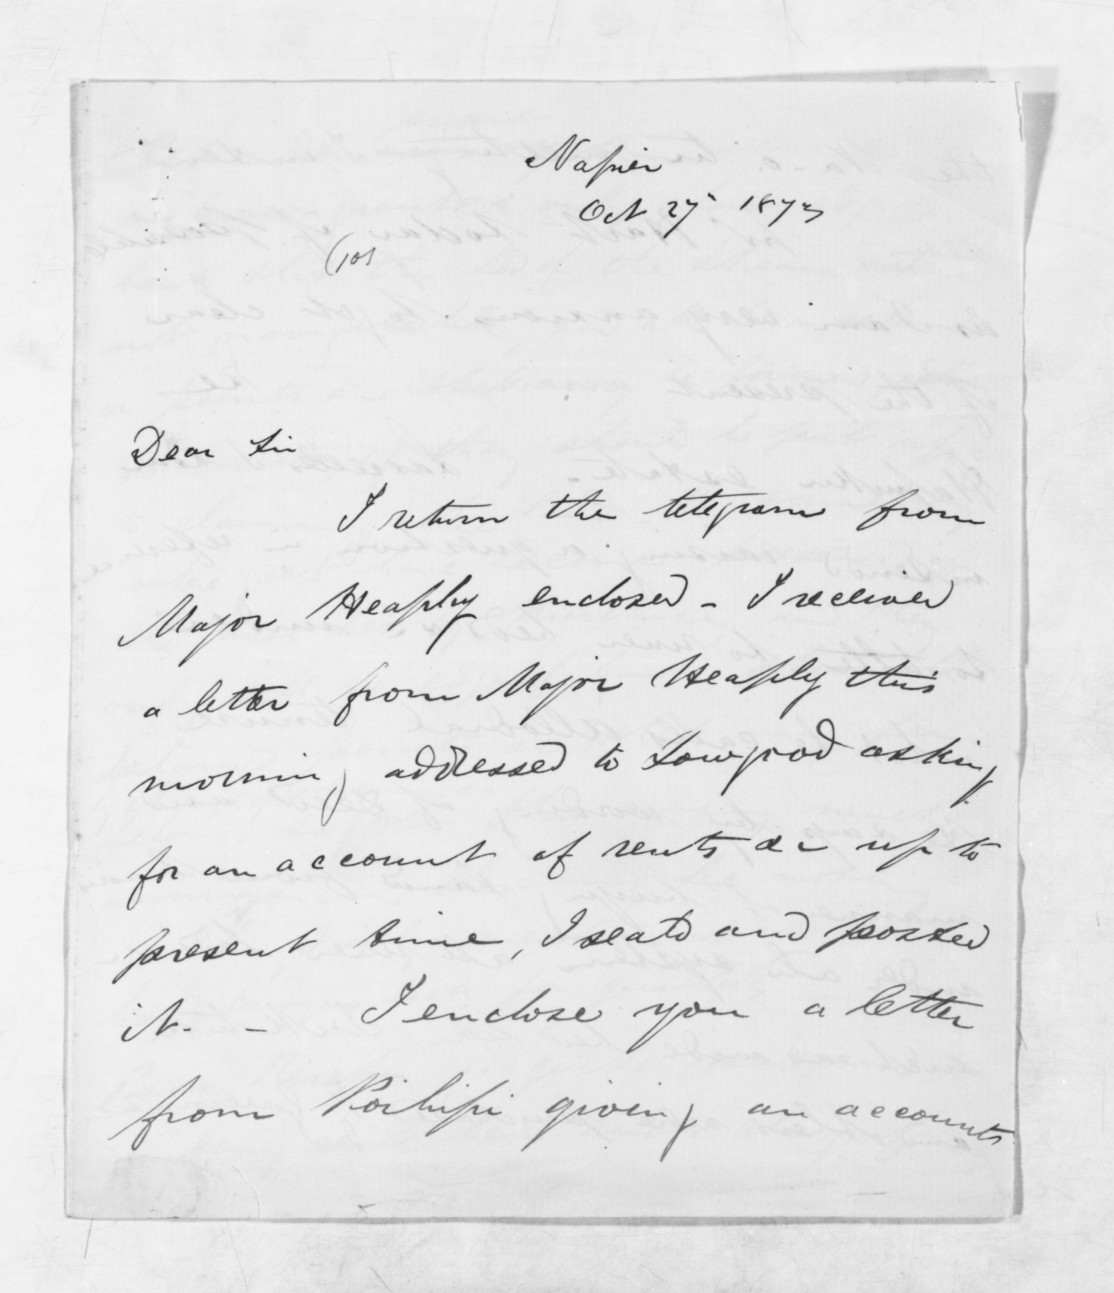 Napier
Oct 27th 1873
Dear Sir
I return the telegram from
Major Heaphy enclosed - I received
a letter from Major Heaphy this
morning addressed to Lowgood asking
for an account of rents &c up to
present time, I seald and posted
it. - I enclose you a letter
from giving an accounts